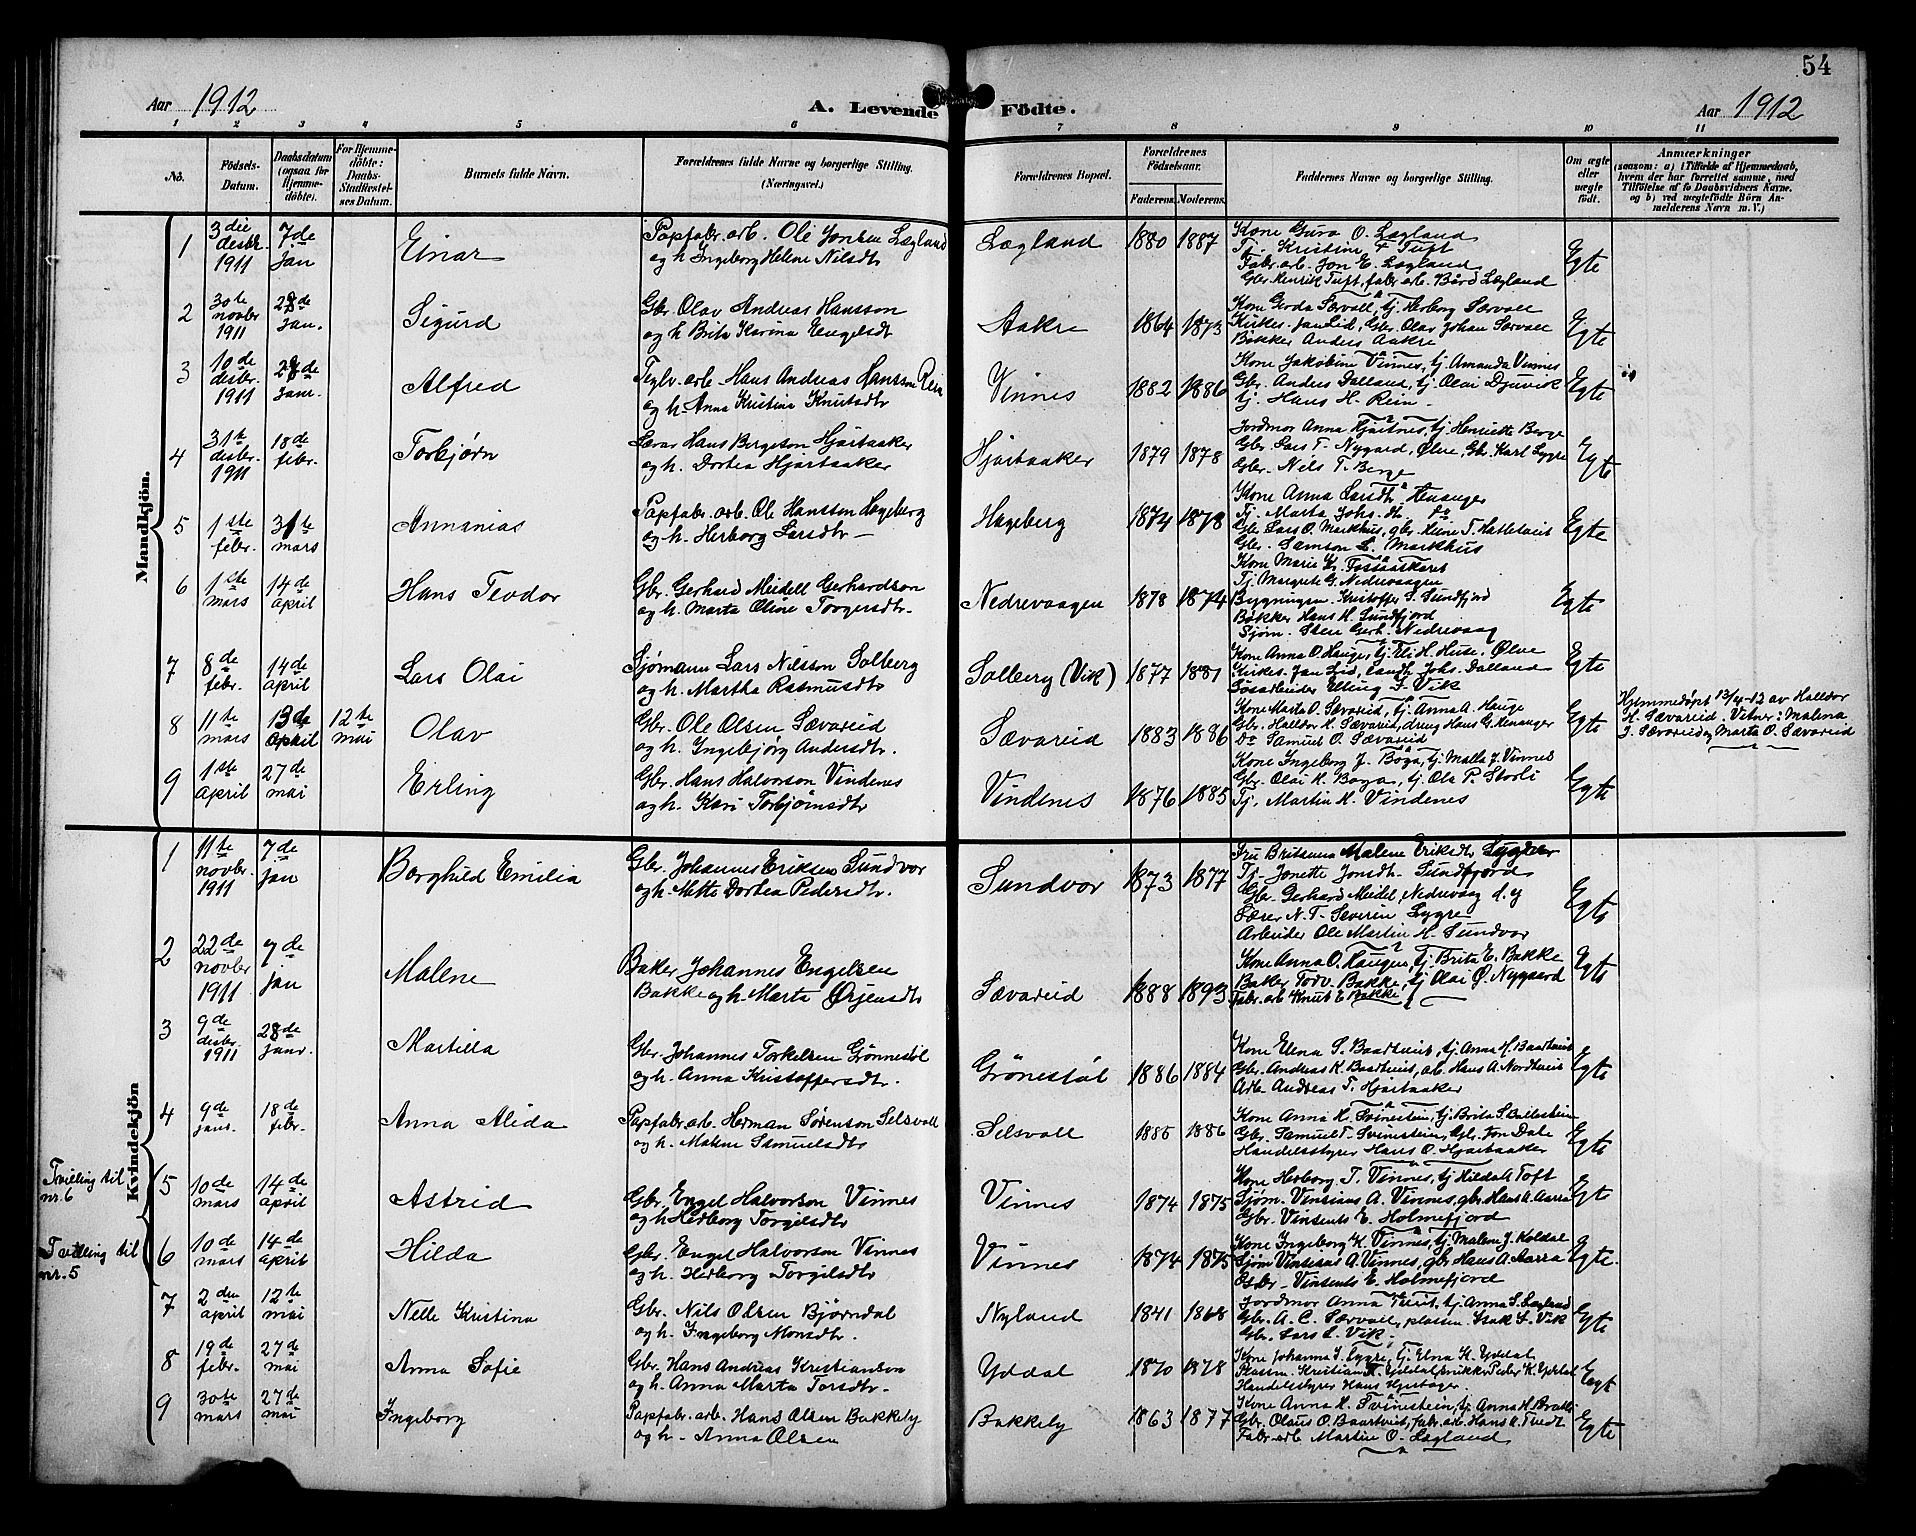 54
Aar 1912 A. Levende Födte. Aar 1912
1 2 3 4 5 6 7 8 9 10 11
No.
Födsels-Datum.
Daabsdatum (ogsaa for Hjemmedöbte).
For Hjemmedöbte: Daabs-Stadfæstelses Datum.
Barnets fulde Navn.
Forældrenes fulde Navne og borgerlige Stilling. (Næringsvei.)
Forældrenes Bopæl.
Forældrenes Födselsaar.
Faderens. Moderens.
Faddernes Navne og borgerlige Stilling.
Om ægte eller uægte födt.
Anmærkninger
(saasom: a) i Tilfælde af Hjemmedaab,
hvem der har forrettet samme, med
Tilföielse af to Daabsvidners Navne.
og b) ved uægtefödte Börn An-
melderens Navn m. V.)
Mandkjön.
1 3die desbr. 1911 7de Jan Einar Papfabr. arb. Ole Jonsen Lægland
og h. Ingeborg Helene Nilsdtr Lægland 1880 1887 Kone Guro O. Lægland
Tj. Kristine Tuft
Fabr. arb. Jon E. Lægland
Gbr. Henrik Tuft, fabr. arb. Bård Lægland Egte
2 30te novbr 1911 28de Jan. Sigurd Gbr. Olav Andreas Hansson
og h. Brita Karina Engelsdtr Aakre 1864 1873 Kone Gerda Sævoll, tj. Herborg Sævoll
Kirkes. Jan Lid, Gbr. Olav Johan Sævoll
Bøkker Anders Aakre Egte
3 10de desbr. 1911 28de Jan. Alfred Teglv. arb. Hans Andreas Hansson Rein
og h. Anna Kristina Knutsdtr Vinnes 1882 1886 Kone Jakobine Vinnes, tj. Amanda Vinnes
Gbr. Anders Dalland, tj. Olai Djuvik
tj. Hans H. Rein Egte
4 31te desbr. 1911 18de febr. Torbjørn Lærar Hans Bergeson Hjartaaker
og h. Dortea Hjartaaker Hjartaaker 1879 1878 Jordmor Anna Hjartnes, tj. Henriette Berge
Gbr. Lars T. Nygard, Ølve, Gb. Karl Lygre
Gbr. Nils T. Berge Egte
5 1ste febr. 31te mars Annanias Papfabr. arb. Ole Hansson Hageberg
og h. Herborg Larsdtr Hageberg 1874 1878 Kone Anna Larsdtr Henanger
Tj. Marta Johs. dtr do
Gbr. Lars O. Markhus, gbr. Heine T. Hatletveit
Gbr. Samson L. Markhus Egte
6 1ste mars 14de April Hans Teodor Gbr. Gerhard Meidell Gerhardson
og h. Marta Oline Torgersdtr. Nedrevaagen 1878 1874 Kone Marie Fossaaskaret
Tj. Margrete G. Nedrevaagen
Bygningsm. Kristoffer S. Sundfjord
Bøkker Hans H. Sundfjord
Sjøm. Steen Gerh. Nedrevaag Egte
7 8de febr. 14de April Lars Olai Sjømann Lars Nilsson Solberg
og h. Martha Rasmusdtr Solberg (Vik) 1877 1881 Kone Anna O. Hauge, tj. Eli H. Huse, Ølve
Kirkes. Jan Lid, Landh. Johs. Dalland
Løsarbeider Elling J. Vik Egte
8 11te mars 13de April 12te mai Olav Gbr. Ole Olsen Sævareid
og h. Ingebjørg Andersdtr. Sævareid 1883 1886 Kone Marta O. Sævareid, tj. Anna A. Hauge
Gbr. Halldor H. Sævareid, dreng Hans G. Henanger
Do Samuel O. Sævareid Egte Hjemmedøpt 13/4-12 av Halldor
H. Sævareid. Vitner: Malena
J. Sævareid og Marta O. Sævareid
9 1ste April 27de mai Erling Gbr. Hans Halvorson Vindenes
og h. Kari Torbjørnsdtr Vindenes 1876 1885 Kone Ingeborg J. Bøga, tj. Malla J. Vinnes
Gbr. Olai K. Bøga, tj. Ole P. Storli
Tj. Martin H. Vindenes Egte
Kvindekjön
1 11te novbr 1911 7de jan Borghild Emilia Gbr. Johannes Eriksen Sundvor
og h. Mette Dortea Pedersdtr. Sundvor 1873 1877 Fru Britanna Malene Eriksdtr Lygre
Tj. Jonette Jonsdtr. Sundfjord
Gbr. Gerhard Meidel Nedrevaag d. y
Lærer N. T. Severin Lygre
Arbeider Ole Martin H. Sundvor Egte
2 22de novbr 1911 7de jan Malene Baker Johannes Engelsen
Bakke og h. Marta Ørjensdtr Sævareid 1888 1893 Kone Anna O. Haugen, tj. Brita E. Bakke
Baker Torv. Bakke, tj Olai Ø. Nygaard
Fabr. arb Knut E Bakke Egte
3 9de desbr. 1911 28de Janr. Martilla Gbr. Johannes Torkelsen Grønnestøl
og h. Anna Kristoffersdtr. Grønestøl 1886 1884 Kone Elna S. Baadtveit, tj. Anna H. Baadtveit
Gbr. Andreas K. Baadtveit, arb. Hans A. Nordtveit
Arb. Andreas T. Hjartaaker Egte
4 9de janr. 18de febr. Anna Alida Papfabr. arb. Herman Sørenson Selsvoll
og h. Malene Samuelsdtr Selsvoll 1885 1886 Kone Anna H. Svinestein, tj. Brita S. Ballestein
Gbr. Samuel T. Svinestein, Gbr. Jon Dale
Handelsstyrer Hans O. Hjartaaker Egte
Tvilling til nr. 6 5 10de mars 14de April Astrid Gbr. Engel Halvorson Vinnes
og h. Herborg Torgilsdtr Vinnes 1874 1875 Kone Herborg T. Vinnes, tj Hilda A Toft
Sjøm. Vinsians A. Vinnes, gbr. Hans A. Aarra
Gbr. Vinsents E. Holmefjord Egte
Tvilling til nr. 5 6 10de mars 14de April Hilda Gbr. Engel Halvorson Vinnes
og h. Herborg Torgilsdtr Vinnes 1874 1875 Kone Ingeborg K. Vinnes, tj. Malene J. Koldal
Sjøm Vinsians A. Vinnes, gbr Hans A. Aarra
Gbr. Vinsents E. Holmefjord Egte.
7 2den April 12te mai Nelle Kristina Gbr. Nils Olsen Bjørndal
og h. Ingeborg Monsdtr. Nyland 1841 1868 Jordmor Anna Tveit, tj. Anna S. Lægland
Gbr. A. C. Sævoll, plassm. Isak S. Vik
Gbr. Lars L. Vik. Egte
8 19de febr. 27de mai Anna Sofie Gbr. Hans Andreas Kristianson
og h. Anna Marta Torsdtr. Yddal 1870 1878 Kone Johanna S. Lygre, tj. Elna K. Yddal
Plassm. Kristian K. Yddal, snikker Peder K. Yddal
Handelsstyrer Hans Hjartager. Egt
9 30te mars 27de mai Ingeborg Papfabr. arb. Hans Olsen Bakkely
og h. Anna Olsen Bakkely 1863 1877 Kone Anna H. Svinestein, tj. Anna H. Bratli
Gbr. Olaus O. Baartveit, fabr. arb. Hans K. Tvedt
Fabr. arb Martin O. Lægland Egte